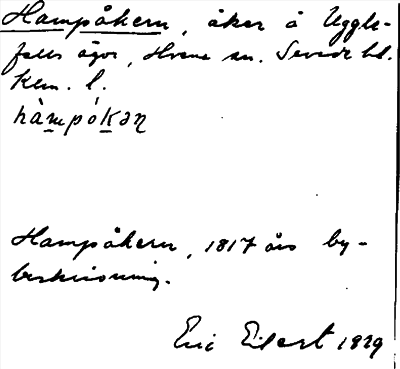 Hampåkern, åker å Uggle-
falls ägor, Hvena sn. Sevede hd.
Klm. l.
hàmpókəɳ
Hampåkern, 1817 års by-
beskrivning.
Eric Elfert 1929